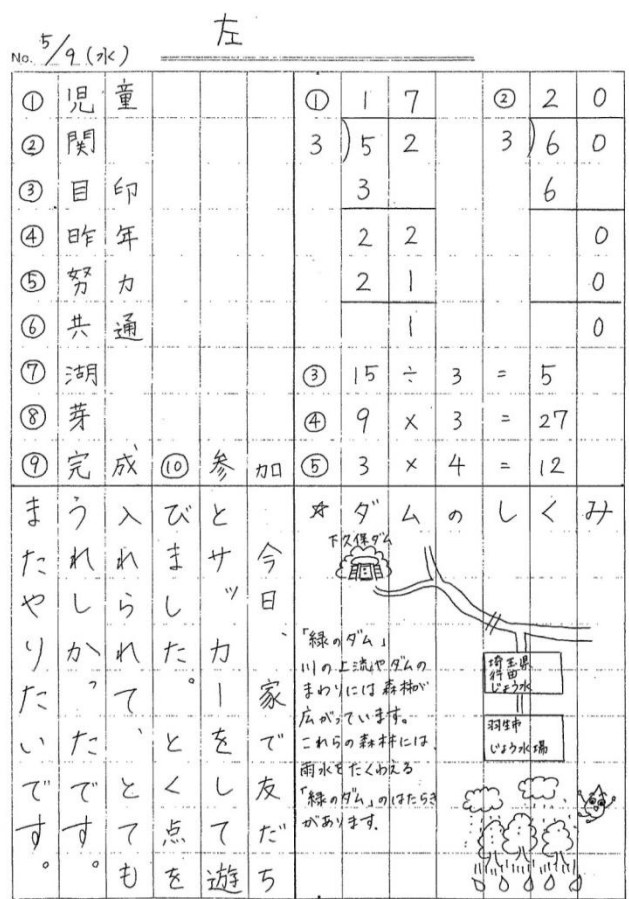 左
No. 5/9(水)
① 児童
② 関
③ 目印
④ 昨年
⑤ 努力
⑥ 共通
⑦ 湖
⑧ 芽
⑨ 完成 ⑩ 参加
① 17
3)52
3
22
21
1
② 20
3)60
6
0
0
0
③ 15 ÷ 3 = 5
④ 9 × 3 = 27
⑤ 3 × 4 = 12
今日、家で友だち
とサッカーをして遊
びました。とく点を
入れられて、とても
うれしかったです。
またやりたいです。
☆ダムのしくみ
下久保ダム
「緑のダム」
川の上流やダムの
まわりには森林が
広がっています。
これらの森林には
雨水をたくわえる
「緑のダム」のはたらき
があります。
埼玉県
行田
じょう水
羽生市
じょう水場